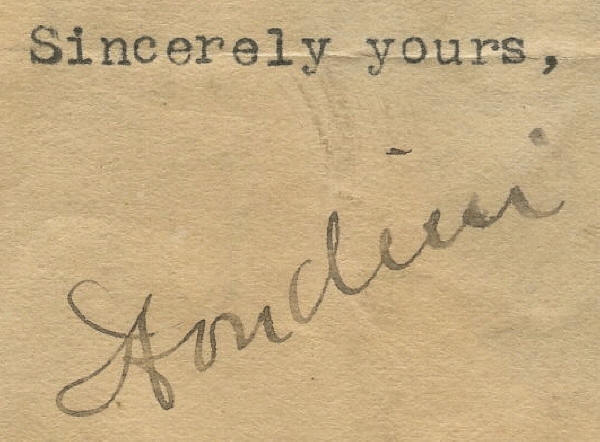 Sincerely yours,
Houdini